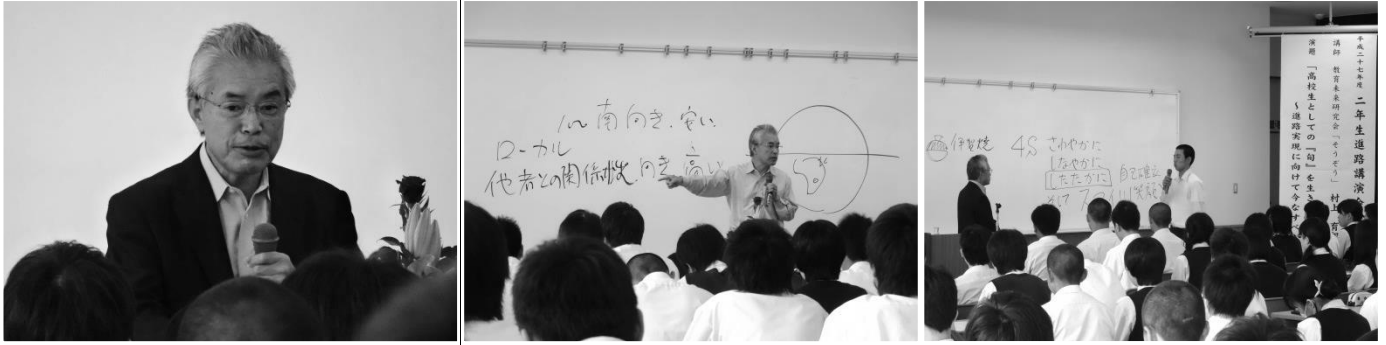 南向き、安い
ローカル
他者との関係性、向き 高い
4S さわやかに
しなやかに
したたかに 自己確立
そして スマイル(笑顔)
平成二十七年度 二年生進路講演会
講師 教育未来研究会「そうぞう」 村上 育
演題 「高校生としての「旬」を生き
～進路実現に向けて今なす